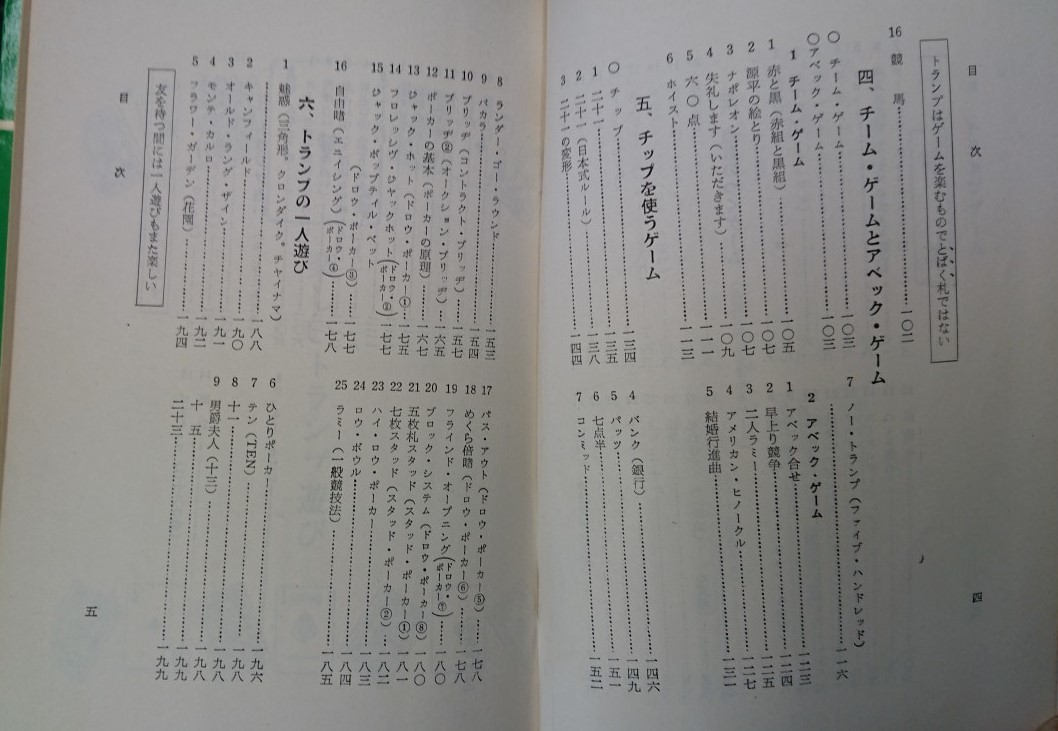 目次
四
トランプはゲームを楽むものでとばく札ではない
16 競馬……一〇二
四、チーム・ゲームとアベック・ゲーム
〇チーム・ゲーム……一〇三
〇アベック・ゲーム……一〇三
1 チーム・ゲーム
1 赤と黒(赤組と黒組)……一〇五
2 源平の絵とり……一〇七
3 ナポレオン……一〇九
4 失礼します(いただきます)……一一一
5 六〇点……一一三
6 ホイスト
7 ノー・トランプ(ファイブ・ハンドレッド)……一一六
2 アベック・ゲーム
1 アベック合せ……一二三
2 早上り競争……一二四
3 二人ラミー……一二五
4 アメリカン・ヒノークル……一二七
5 結婚行進曲……一三一
五、チップを使うゲーム
〇チップ……一三四
1 二十一……一三五
2 二十一(日本式ルール)……一三八
3 二十一の変形……一四四
4 バンク(銀行)……一四六
5 パッツ……一四九
6 七点半……一五一
7 コンミッド……一五二
8 ランダ・ゴー・ラウンド……一五三
9 バカラ……一五四
10 ブリッヂ(コントラクト・ブリッヂ)……一五七
11 ブリッヂ②(オークション・ブリッヂ)……一六五
12 ポーカーの基本(ポーカーの原理)……一六七
13 ジャック・ホット(ドロウ・ポーカー①)……一七五
14 フロレッシヴ・ジャックホット(ドロウ・ポーカー②)……一七七
15 ジャック・ポップティル・ベット
(ドロウ・ポーカー③)……一七七
16 自由賭(エニイシング)(ドロウ・ポーカー④)……一七八
17 パス・アウト(ドロウ・ポーカー⑤)……一七八
18 めくら倍賭(ドロウ・ポーカー⑥)……一七八
19 フラインド・オープニング(ドロウ・ポーカー⑦)……一八〇
20 ブロック・システム(ドロウ・ポーカー⑧)……一八〇
21 五枚札スタッド(スタッド・ポーカー①)……一八一
22 七枚スタッド(スタッド・ポーカー②)……一八二
23 ハイ・ロウ・ポーカー……一八三
24 ロウ・ボウル……一八四
25 ラミー(一般競技法)……一八五
六、トランプの一人遊び
1 魅惑(三角形。クロンダイク。チャイナマ)
……一八八
2 キャンフィールド……一九〇
3 オールド・ラング・ザイン……一九一
4 モンテ・カルロ……一九二
5 フラワー・ガーデン(花園)……一九四
6 ひとりポーカー……一九六
7 テン(TEN)……一九八
8 十一……一九八
9 男爵夫人(十三)……一九八
十五……一九九
二十三……一九九
友を待つ間には一人遊びもまた楽しい
目次
五